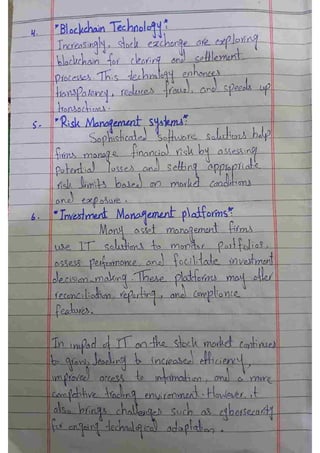 4. "Blockchain Technology":
Increasingly, stock exchange are exploring
blockchain for clearing and settlement
processes. This technology enhances
transparency, reduces fraud, and speeds up
transactions.
5. "Risk Management systems":
Sophisticated Software solutions help
firms manage financial risk by assessing
potential losses and setting appropriate
risk limits based on market conditions
and exposure.
6. "Investment Management platforms":
Many asset management firms
use IT solutions to monitor portfolios,
assess performance, and facilitate investment
decision-making. These platforms may offer
reconciliation, reporting, and compliance
features.
In impact of IT on the stock market continues
to grow, leading to increased efficiency,
improved access to information, and a more
competitive trading environment. However, it
also brings challenges such as cybersecurity
for ongoing technological adaptation.